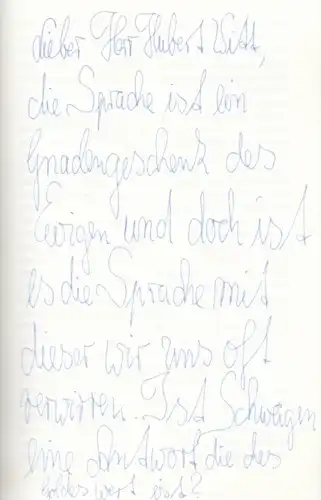 Lieber Herr Hubert Witt,
die Sprache ist ein
Gnadengeschenk des
Ewigen und doch ist
es die Sprache mit
dieser wir uns oft
verwirren. Ist Schweigen
eine Antwort die des
Goldes wert ist?